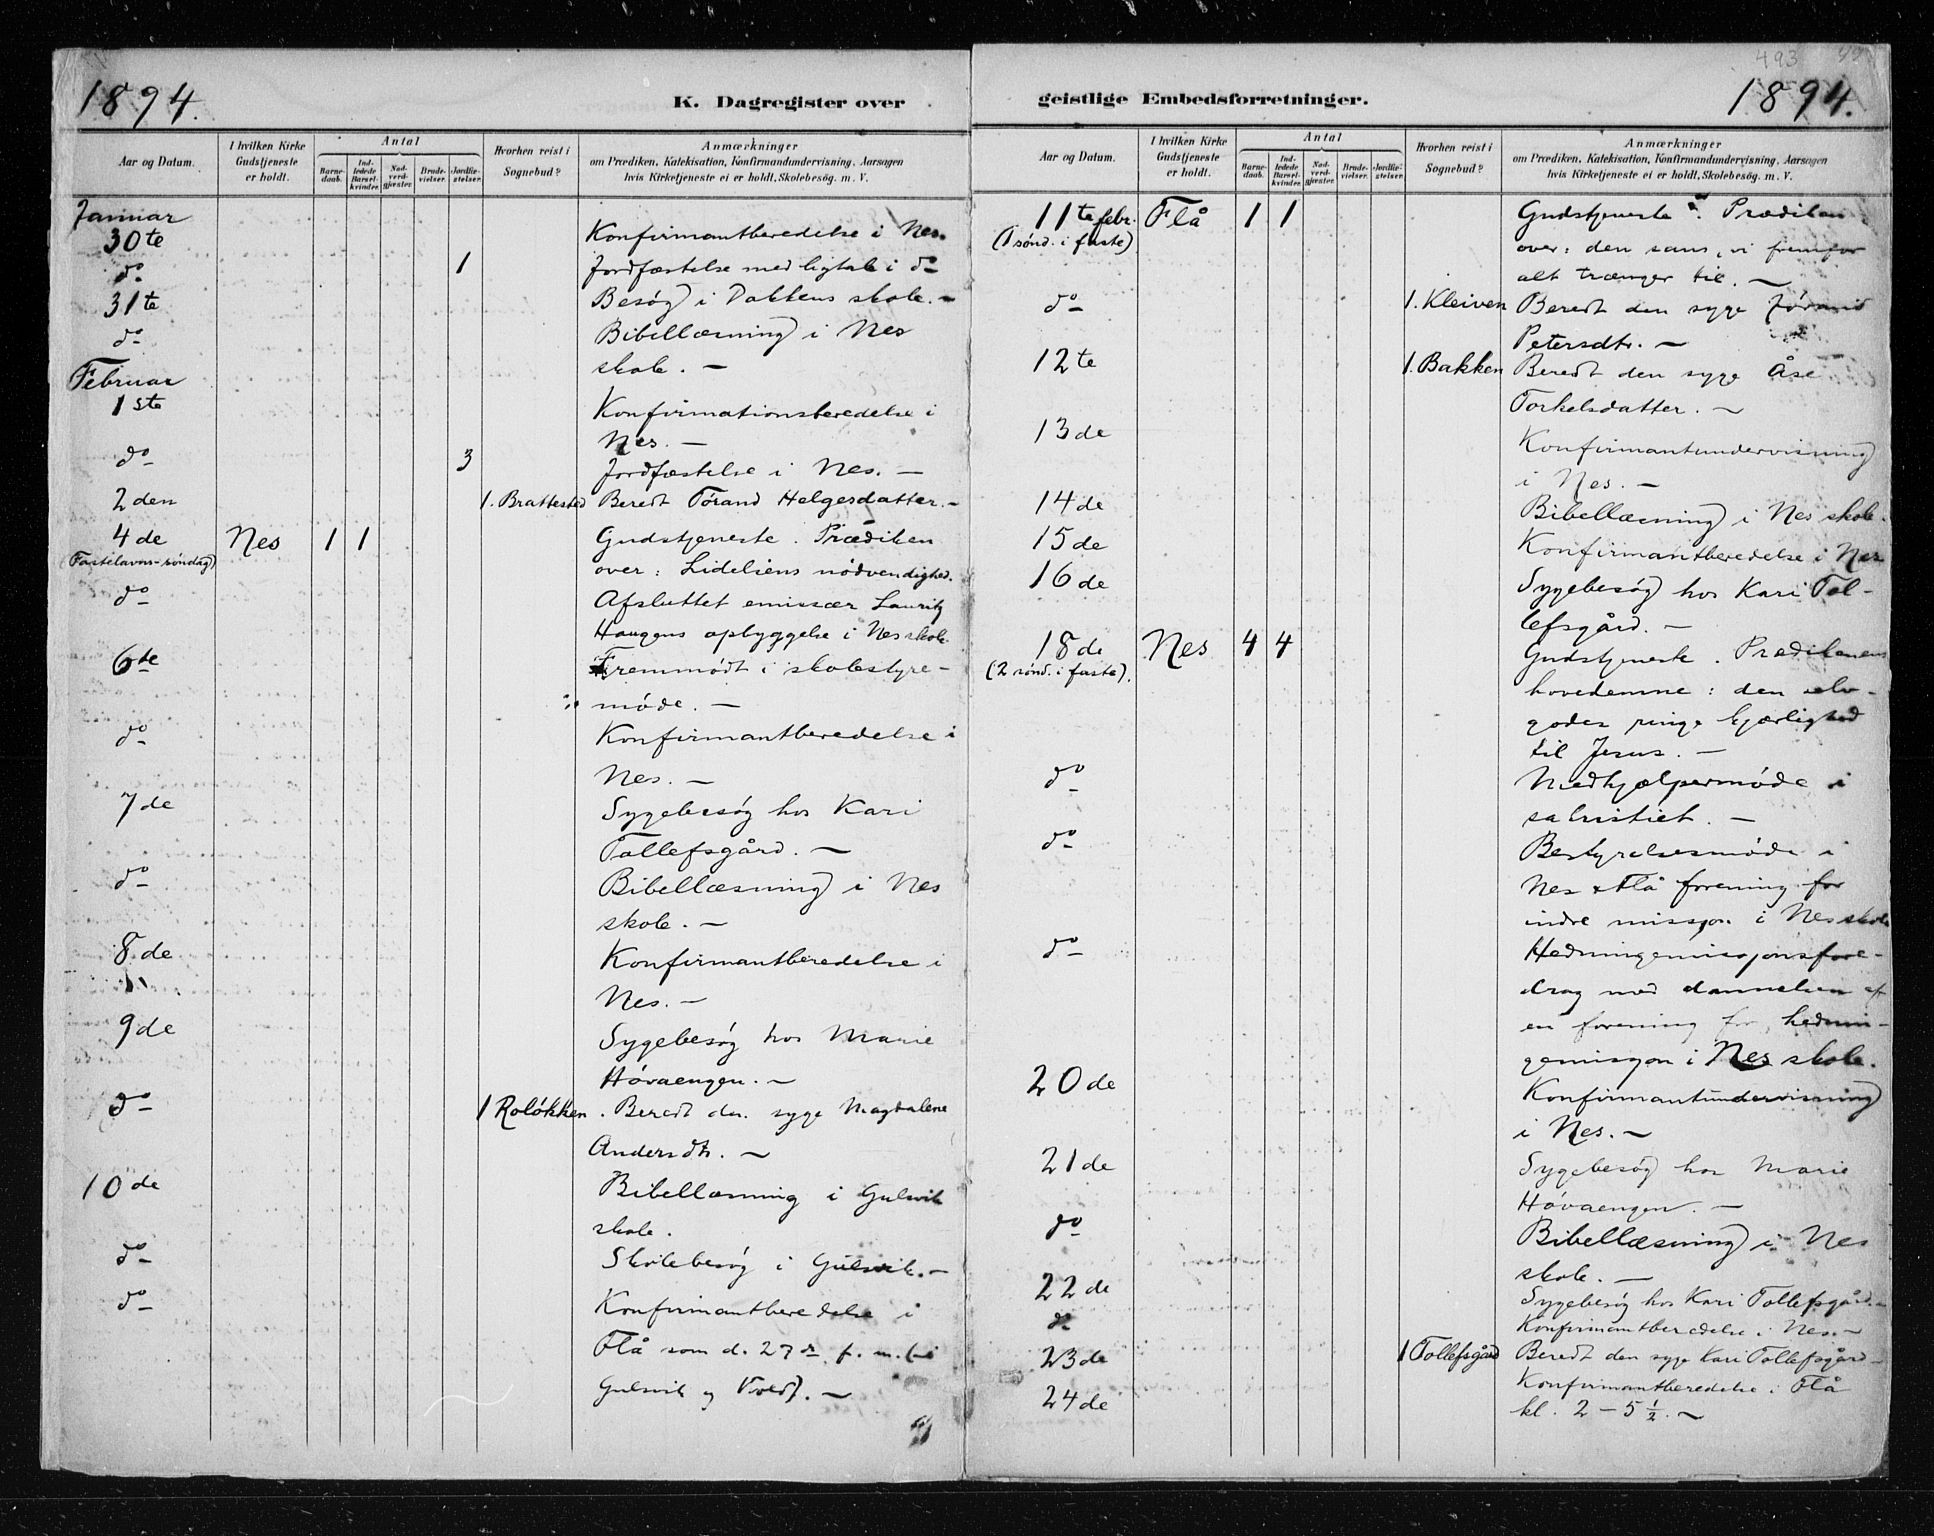 1894.
K. Dagregister over
Aar og Datum.
I hvilken Kirke Gudstjeneste er holdt.
Antal
Barnedaab.
Indledede Barselkvinder.
Nadverdgjæster.
Brudevielser.
Jordfæstelser.
Hvorhen reist i Sognebud?
Anmærkninger
om Prædiken, Katekisation, Konfirmandundervisning, Aarsagen
hvis Kirketjeneste ei er holdt, Skolebesøg. m. V.
Januar
30te Konfirmantberedelse i Nes.
do 1 Jordfæstelse med ligtale i do
31te Besøg i Dokkens skole. –
do Bibellæsning i Nes
skole. –
Februar
1ste Konfirmationsberedelse i
Nes. –
do 3 Jordfæstelse i Nes. –
2den 1. Brattested Beredt Tørand Helgesdatter. –
4de Nes 1 1 Gudstjeneste. Prædiken
(Fastelavns-søndag) over: Lidelsens nødvendighed.
do Afsluttet emissær Lauritz
Haugens opbyggelse i Nes skole
6te Fremmødt i skolestyre-
møde. –
do Konfirmantberedelse i
Nes. –
7de Sygebesøg hos Kari
Tollefsgård. –
do Bibellæsning i Nes
skole. –
8de Konfirmantberedelse i
Nes. –
9de Sygebesøg hos Marie
Hóvaengen. –
do 1 Roløkken. Beredt den syge Magdalene
Andersdtr. –
10de Bibellæsning i Gulsvik
skole.
do Skolebesøg i Gulsvik. –
do Konfirmantberedelse i
Flå som d. 27de f. m. (i
Gulsvik og Vold). –
geistlige Embedsforretninger.
493
1894.
Aar og Datum.
I hvilken Kirke Gudstjeneste er holdt.
Antal
Barnedaab.
Indledede Barselkvinder.
Nadverdgjæster.
Brudevielser.
Jordfæstelser.
Hvorhen reist i Sognebud?
Anmærkninger
om Prædiken, Katekisation, Konfirmandundervisning, Aarsagen
hvis Kirketjeneste ei er holdt, Skolebesøg. m. V.
11te febr. Flå 1 1 Gudstjeneste. Prædiken
(1 sønd. i faste) over: den sans, vi fremfor
alt trænger til. –
do 1. Kleiven Beredt den syge Jórand
Petersdtr. –
12te 1. Bakken Beredt den syge Åse
Torkelsdatter. –
13de Konfirmantundervisning
i Nes. –
14de Bibellæsning i Nes skole.
15de Konfirmantberedelse i Nes
16de Sygebesøg hos Kari Tol-
lefsgård. –
18de Nes 4 4 Gudstjeneste. Prædikenens
(2 sønd. i faste). hovedemne: den
ringe kjærlighed
til Jesus. –
do Medhjælpermøde i
sakristiet. –
do Bestyrelsesmøde i
Nes & Flå forening for
indre mission i Nes skole
do Hedningemissjonsfore-
drag med dannelsen af
en forening for hednin-
gemissjon i Nes skole.
20de Konfirmantundervisning
i Nes. –
21de Sygebesøg hos Marie
Hóvaengen. –
do Bibellæsning i Nes
skole. –
22de Sygebesøg hos Kari Tollefsgård.
do Konfirmantberedelse i Nes. –
23de 1 Tollefsgård Beredt den syge Kari Tollefsgård –
24de Konfirmantberedelse i Flå
kl. 2 – 5 ½. –